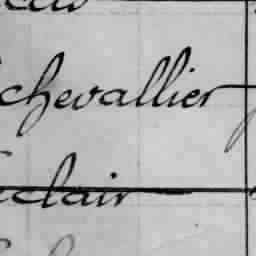 chevallier
clair